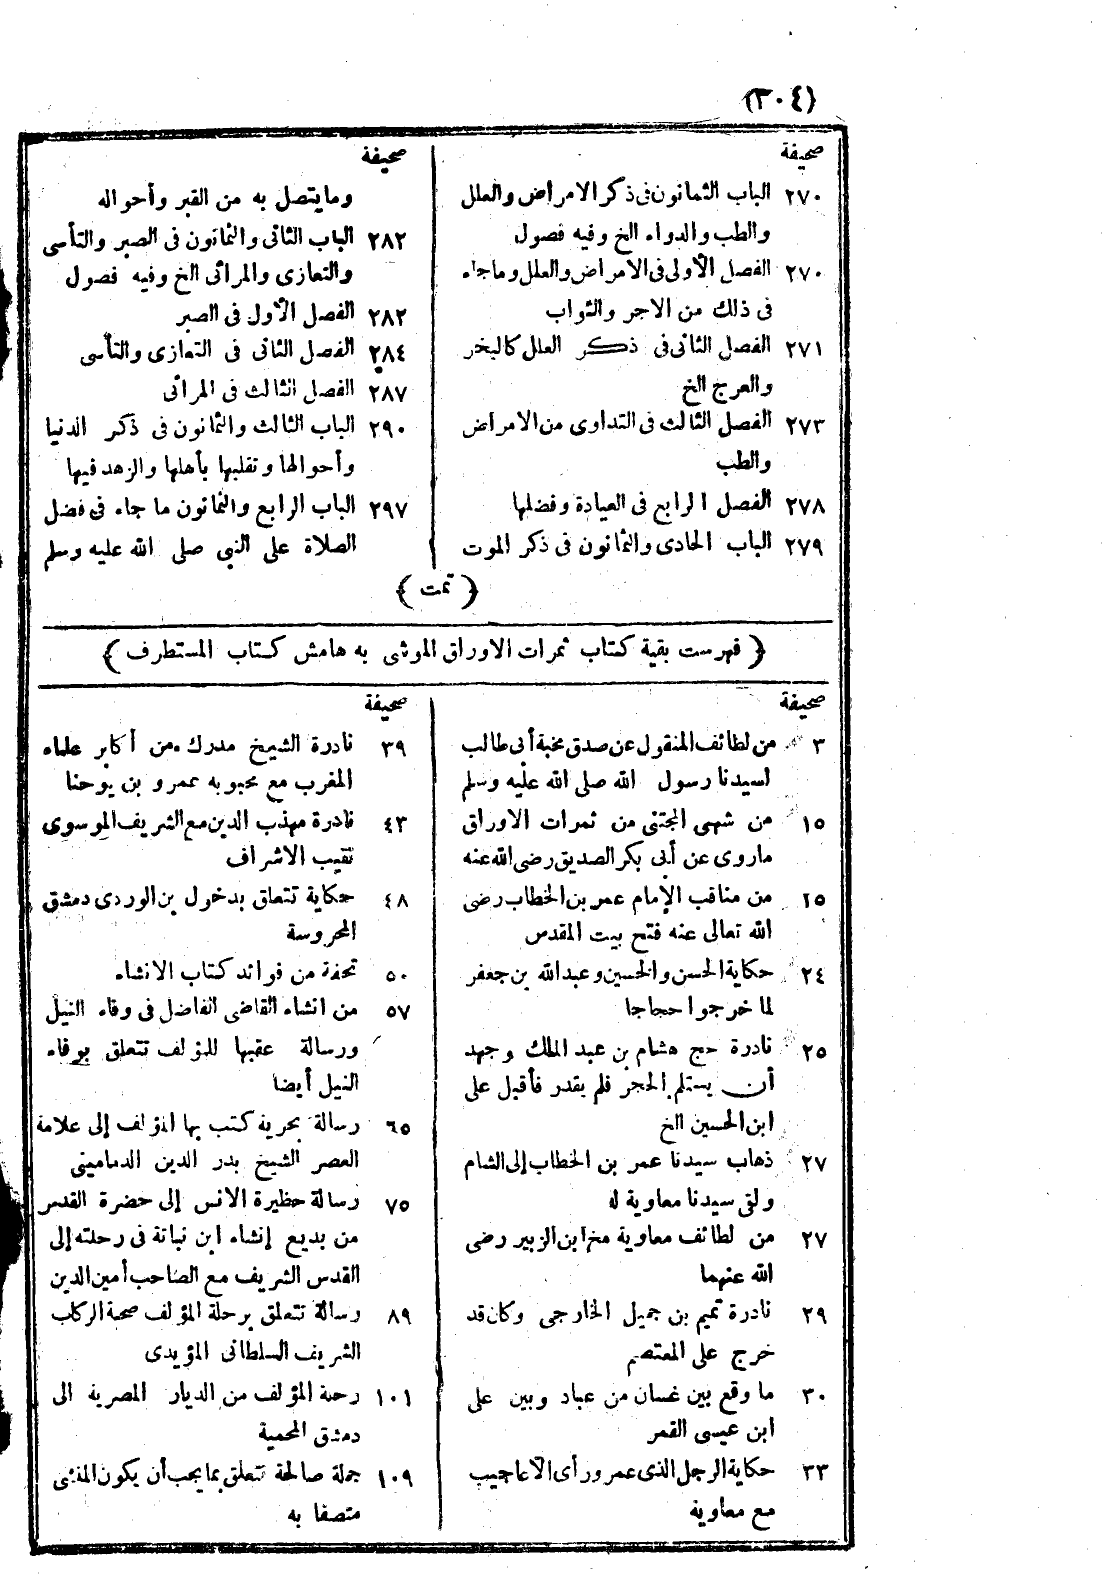 (٣٠٤)
صحيفة
٢٧٠ الباب الثمانون فى ذكر الامراض والعلل
والطب والدواء الخ وفيه فصول
٢٧٠ الفصل الأولى فى الامراض والعلل وماجاء
فى ذلك من الاجر والثواب
٢٧١ الفصل الثانى فى ذكر العلل كالبخر
والعرج الخ
٢٧٣ الفصل الثالث فى التداوى من الامراض
والطب
٢٧٨ الفصل الرابع فى العيادة وفضلها
٢٧٩ الباب الحادى والثمانون فى ذكر الموت
صحيفة
ومايتصل به من القبر وأحواله
٢٨٢ الباب الثانى والثمانون فى الصبر والتأسى
والتعازى والمراثى الخ وفيه فصول
٢٨٢ الفصل الأول فى الصبر
٢٨٤ الفصل الثانى فى التعازى والتأسى
٢٨٧ الفصل الثالث فى المراثى
٢٩٠ الباب الثالث والثمانون فى ذكر الدنيا
وأحوالها وتقلبها بأهلها والزهد فيها
٢٩٧ الباب الرابع والثمانون ما جاء فى فضل
الصلاة على النبى صلى الله عليه وسلم
﴿ تمت ﴾
﴿ فهرست بقية كتاب ثمرات الاوراق الموشى به هامش كتاب المستطرف ﴾
صحيفة
٣ من لطائف المنقول عن صدق محبة أبى طالب
لسيدنا رسول الله صلى الله عليه وسلم
١٥ من شهى المجتنى من ثمرات الاوراق
ماروى عن أبى بكر الصديق رضى الله عنه
١٥ من مناقب الإمام عمر بن الخطاب رضى
الله تعالى عنه فتح بيت المقدس
٢٤ حكاية الحسن والحسين وعبد الله بن جعفر
لما خرجوا حجاجا
٢٥ نادرة حج هشام بن عبد الملك وجهد
أن يستلم الحجر فلم يقدر فأقبل على
ابن الحسين الخ
٢٧ ذهاب سيدنا عمر بن الخطاب إلى الشام
ولقى سيدنا معاوية له
٢٧ من لطائف معاوية مع ابن الزبير رضى
الله عنهما
٢٩ نادرة تميم بن جميل الخارجى وكان قد
خرج على المعتصم
٣٠ ما وقع بين غسان من عباد وبين على
ابن عيسى القمر
٣٣ حكاية الرجل الذى عمر ورأى الأعاجيب
مع معاوية
صحيفة
٣٩ نادرة الشيخ مدرك من أكابر علماء
المغرب مع محبوبه عمرو بن يوحنا
٤٣ نادرة مهذب الدين مع الشريف الموسوى
نقيب الاشراف
٤٨ حكاية تتعلق بدخول بن الوردى دمشق
المحروسة
٥٠ تحفة من فوائد كتاب الانشاء
٥٧ من انشاء القاضى الفاضل فى وفاء النيل
ورسالة عقبها للمؤلف تتعلق بوفاء
النيل أيضا
٦٥ رسالة بحرية كتب بها المؤلف إلى علامة
العصر الشيخ بدر الدين الدمامينى
٧٥ رسالة حظيرة الانس إلى حضرة القدس
من بديع إنشاء ابن نباتة فى رحلته إلى
القدس الشريف مع الصاحب أمين الدين
٨٩ رسالة تتعلق برحلة المؤلف صحبة الركاب
الشريف السلطانى المؤيدى
١٠١ رحلة المؤلف من الديار المصرية الى
دمشق المحمية
١٠٩ جملة صالحة تتعلق بما يجب أن يكون المنشى
متصفا به